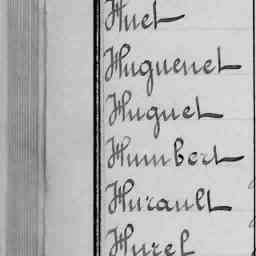 Huet
Huguenet
Huguet
Humbert
Hurault
Hurel